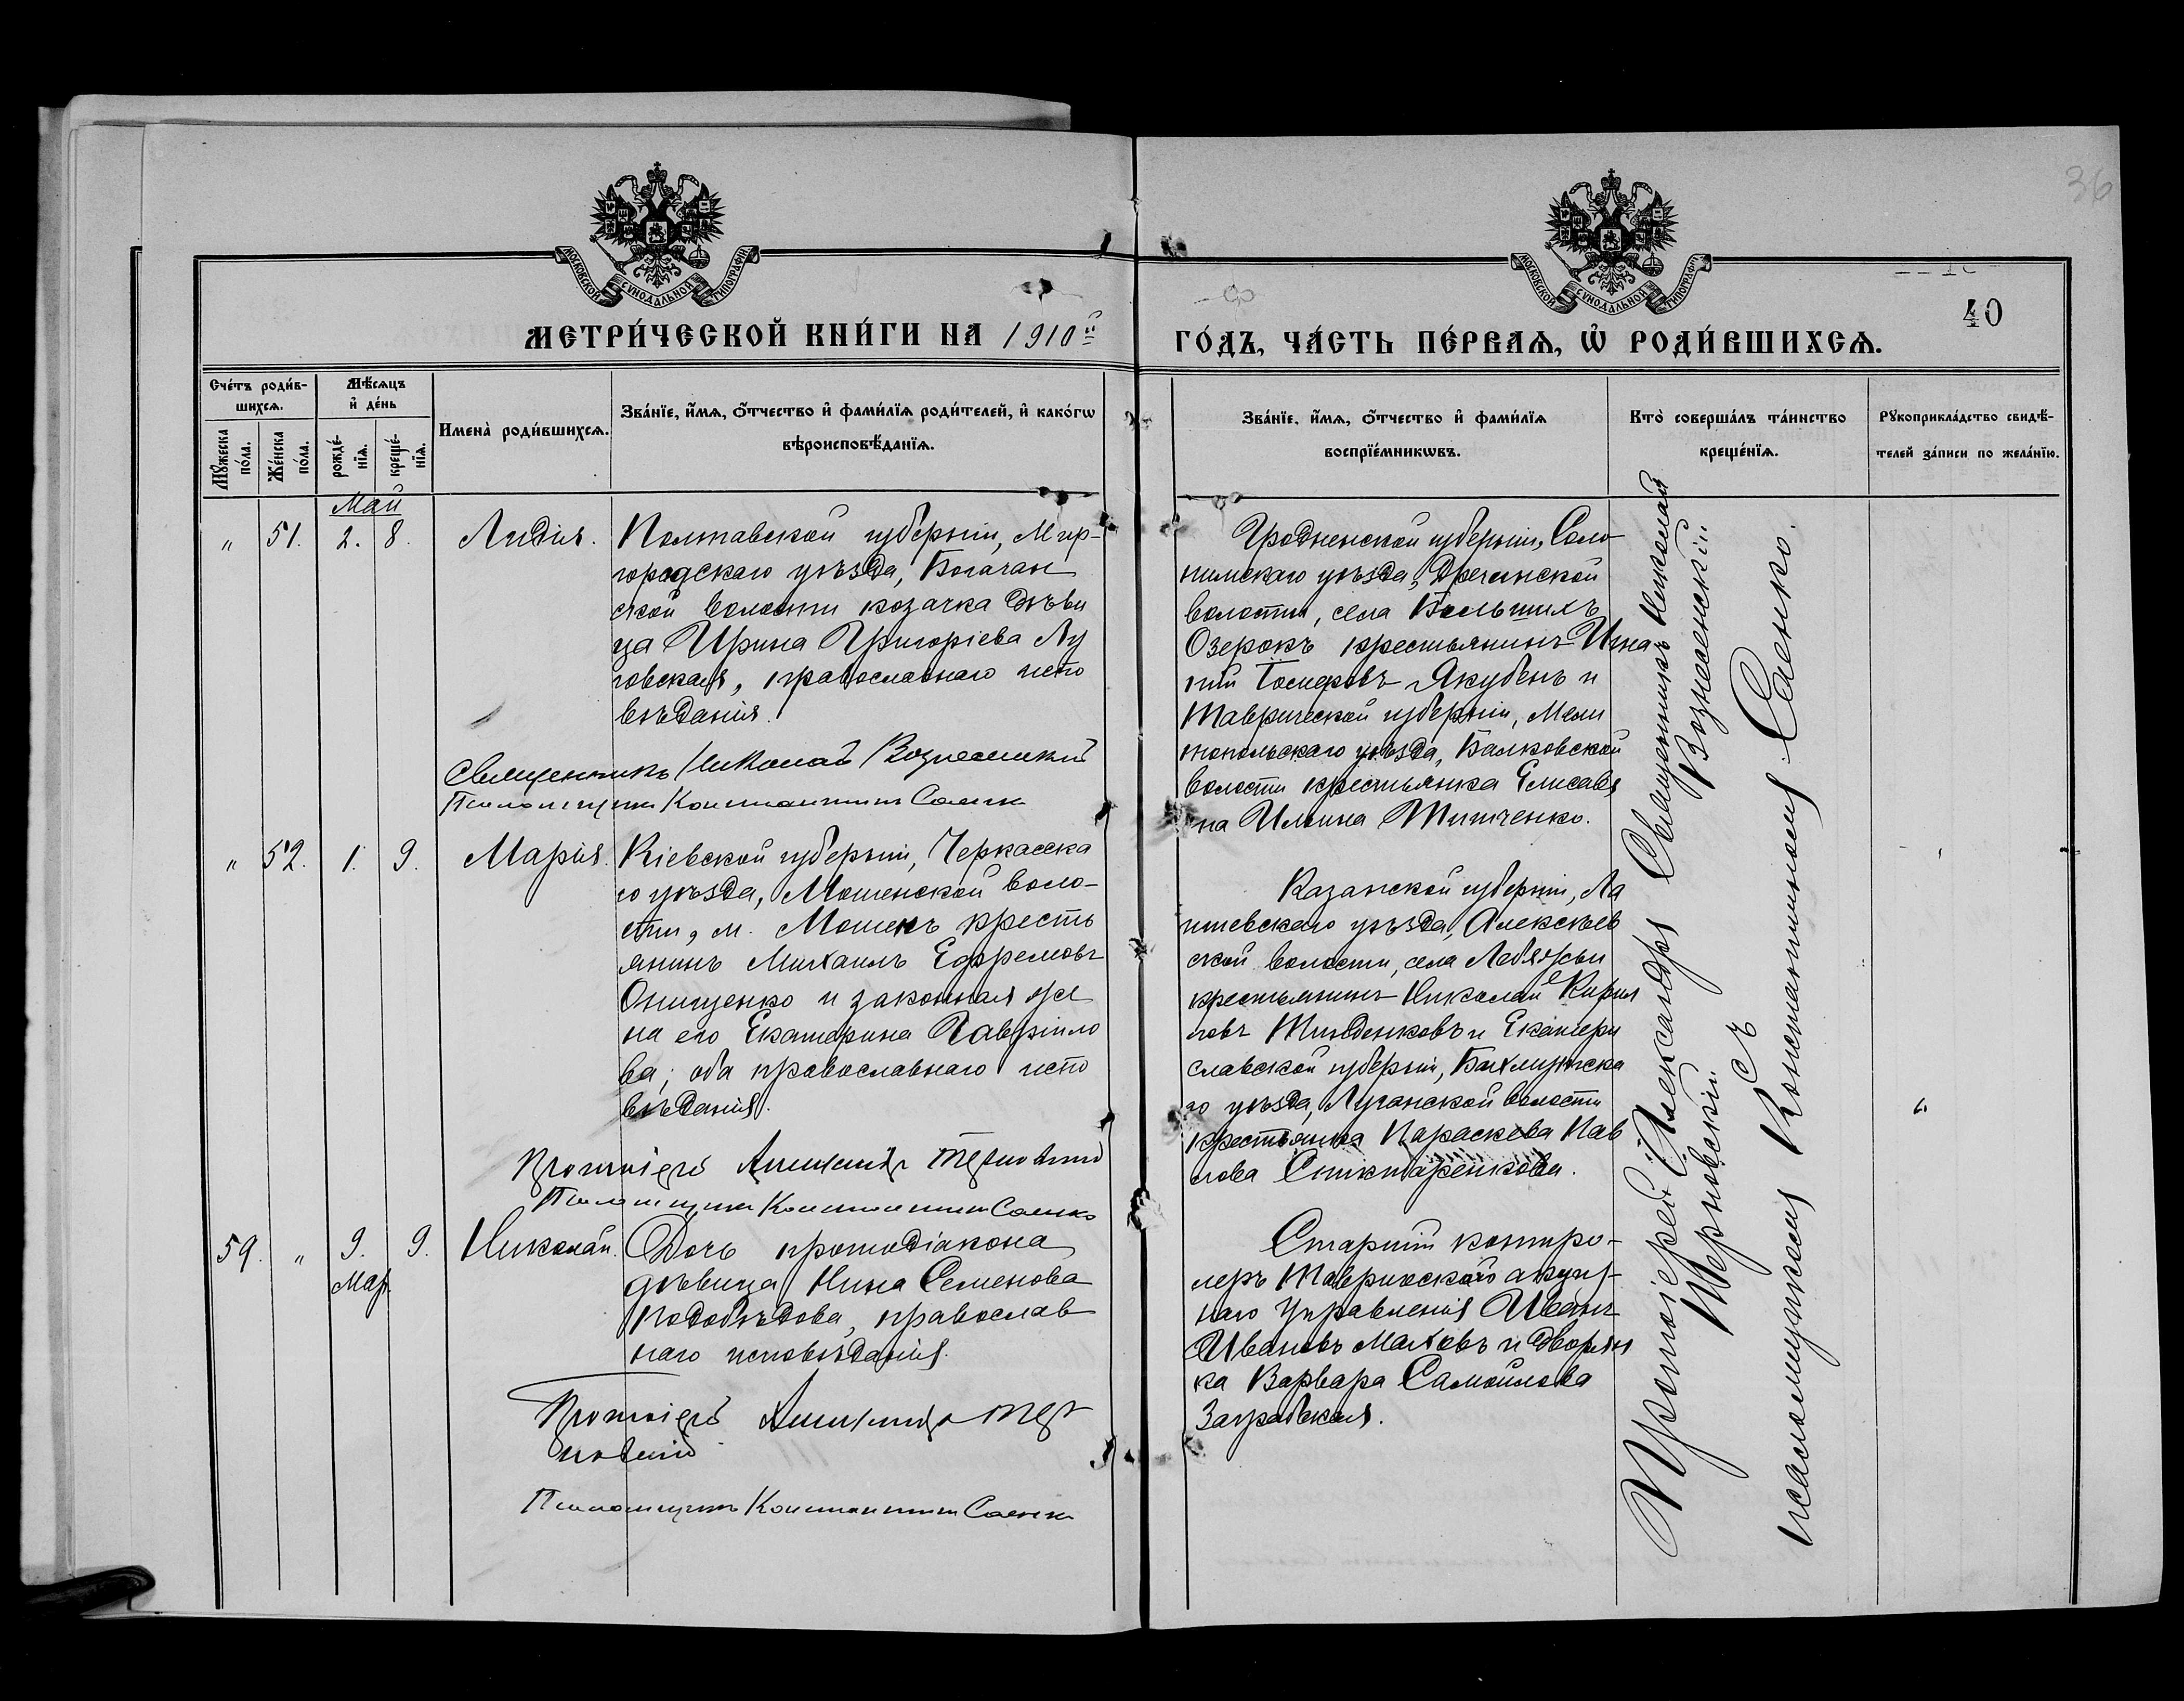 36
40
МОСКОВСКОЙ СѴНОДАЛЬНОЙ ТИПОГРАФІИ
МОСКОВСКОЙ СѴНОДАЛЬНОЙ ТИПОГРАФІИ
МЕТРИ́ЧЕСКОЙ КНИ́ГИ НА 1910й
ГО́ДЪ, ЧА́СТЬ ПЕ́РВАѦ, Ѡ РОДИ́ВШИХСѦ.
Сче́тъ роди́в-
шихсѧ.
Мꙋ́жеска по́ла.
Же́нска по́ла.
Мѣ́сѧцъ
и҆ де́нь
рожде́-
нїѧ.
креще́-
нїѧ.
Имена̀ роди́вшихсѧ.
Зва́нїе, и҆́мѧ, ѻ҆́тчество и҆ фами́лїѧ роди́телей, и҆ како́гѡ
вѣроисповѣ́данїѧ.
Зва́нїе, и҆́мѧ, ѻ҆́тчество и҆ фами́лїѧ
воспрїе́мникѡвъ.
Кто̀ соверша́лъ та́инство
креще́нїѧ.
Рꙋкоприкла́дство свидѣ́-
телей за́писи по жела́нїю.
Май
" 51. 2. 8. Лидія.
Полтавской губерніи, Мир-
городскаго уѣзда, Богачан
ской волости козачка дѣви
ца Ирина Григоріева Лу
говская, православнаго испо
вѣданія.
Священникъ Николай Вознесенский
Псаломщикъ Константинъ Саенко
Гродненской губерніи, Сло-
нимскаго уѣзда,
волости, села Большихъ
Озерокъ крестьянинъ Игна
тій Якубень и
Таврической губерніи, Мели
топольскаго уѣзда, Балковской
волости крестьянка Елисаве
та Ильина Титченко.
" 52. 1. 9. Марія.
Кіевской губерніи, Черкасска
го уѣзда, Мошенской воло-
сти, м. Мошенъ кресть
янинъ Михаилъ Ефремовъ
Онищенко и законная же
на его Екатерина Гавріило
ва; оба православнаго испо
вѣданія.
Протоіерей Александръ Терновскій
Псаломщикъ Константинъ Саенко
Казанской губерніи, Ла
ишевскаго уѣзда, Алексѣев
ской волости, села Лебяжьи
крестьянинъ Николай Кирил
ловъ и Екатерино
славской губерніи, Бахмутска
го уѣзда, Луганской волости
крестьянка Параскева Пав
лова
59. " 9. 9. Николай.
Мар.
Дочь протодіакона
дѣвица Нина Семенова
Подобѣдова, православ
наго исповѣданія.
Протоіерей Александръ Тер
новскій
Псаломщикъ Константинъ Саенко
Старшій контро-
леръ Таврическаго акциз-
наго Управленія Иванъ
Ивановъ Маховъ и дворян
ка Варвара Самойлова
Протоіерей Александръ
Терновскій
Священникъ Николай
Вознесенскій
съ
псаломщикомъ Константиномъ Саенко.